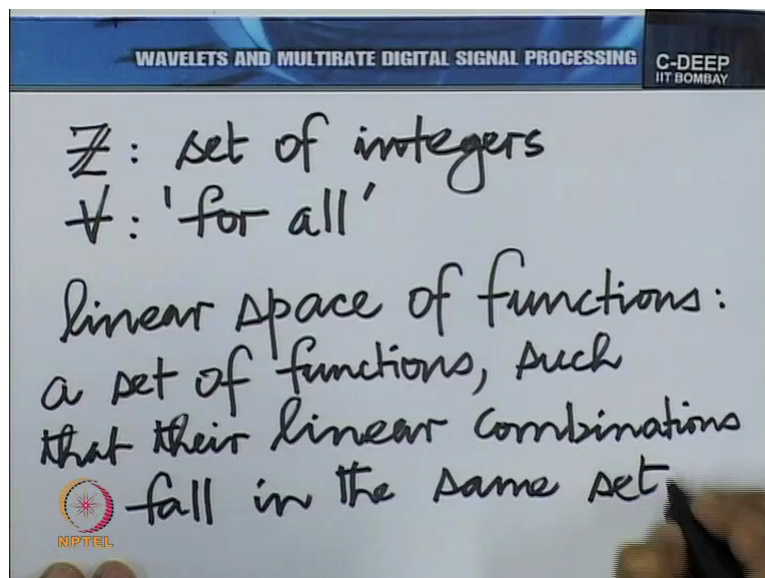 WAVELETS AND MULTIRATE DIGITAL SIGNAL PROCESSING
C-DEEP
IIT BOMBAY
ℤ: set of integers
∀: 'for all'
linear space of functions:
a set of functions, such
that their linear combinations
fall in the same set
NPTEL